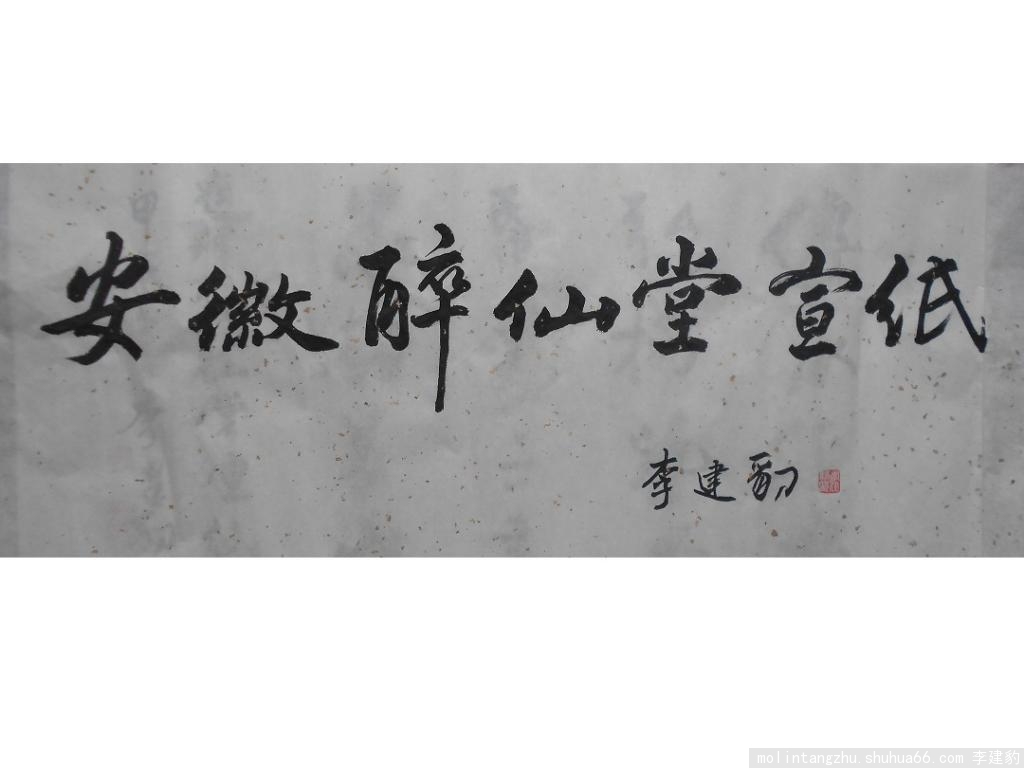 安徽醉仙堂宣纸
李建豹
molintangzhu.shuhua66.com 李建豹